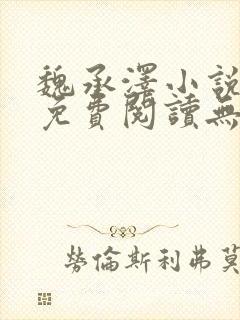 魏承澤小說
免費閱讀無
勞倫斯利弗莫